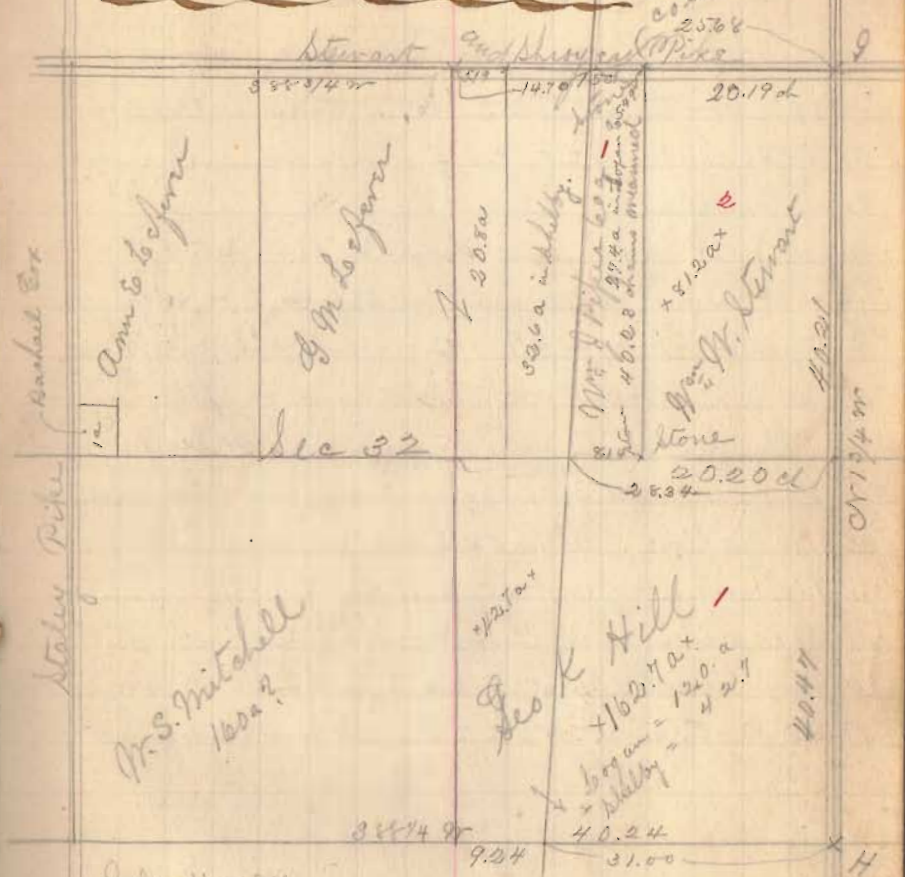 25.68
Stewart and Shroyer Pike
S 88 3/4 W
5.19
14.70
7.50
20.19 ch
Rachael Cox
Ann E Lefever
G M Lefever
20.8 a
32.6 a in Shelby.
Wm J Piper 60 a
40.28 chains measured
1
2
+81.2 a+
Wm W. Stewart
40.21
1a
Sec 32
8.18
Stone
Stone
20.20 ch
28.34
N 1 3/4 W
Staley Pike
W.S. Mitchell
160 a?
+42.7 a+
Geo K Hill
1
+162.7 a+
Logan = 120. a
Shelby = 42.7
40.47
S 88 1/4 W
40.24
9.24
31.00
H